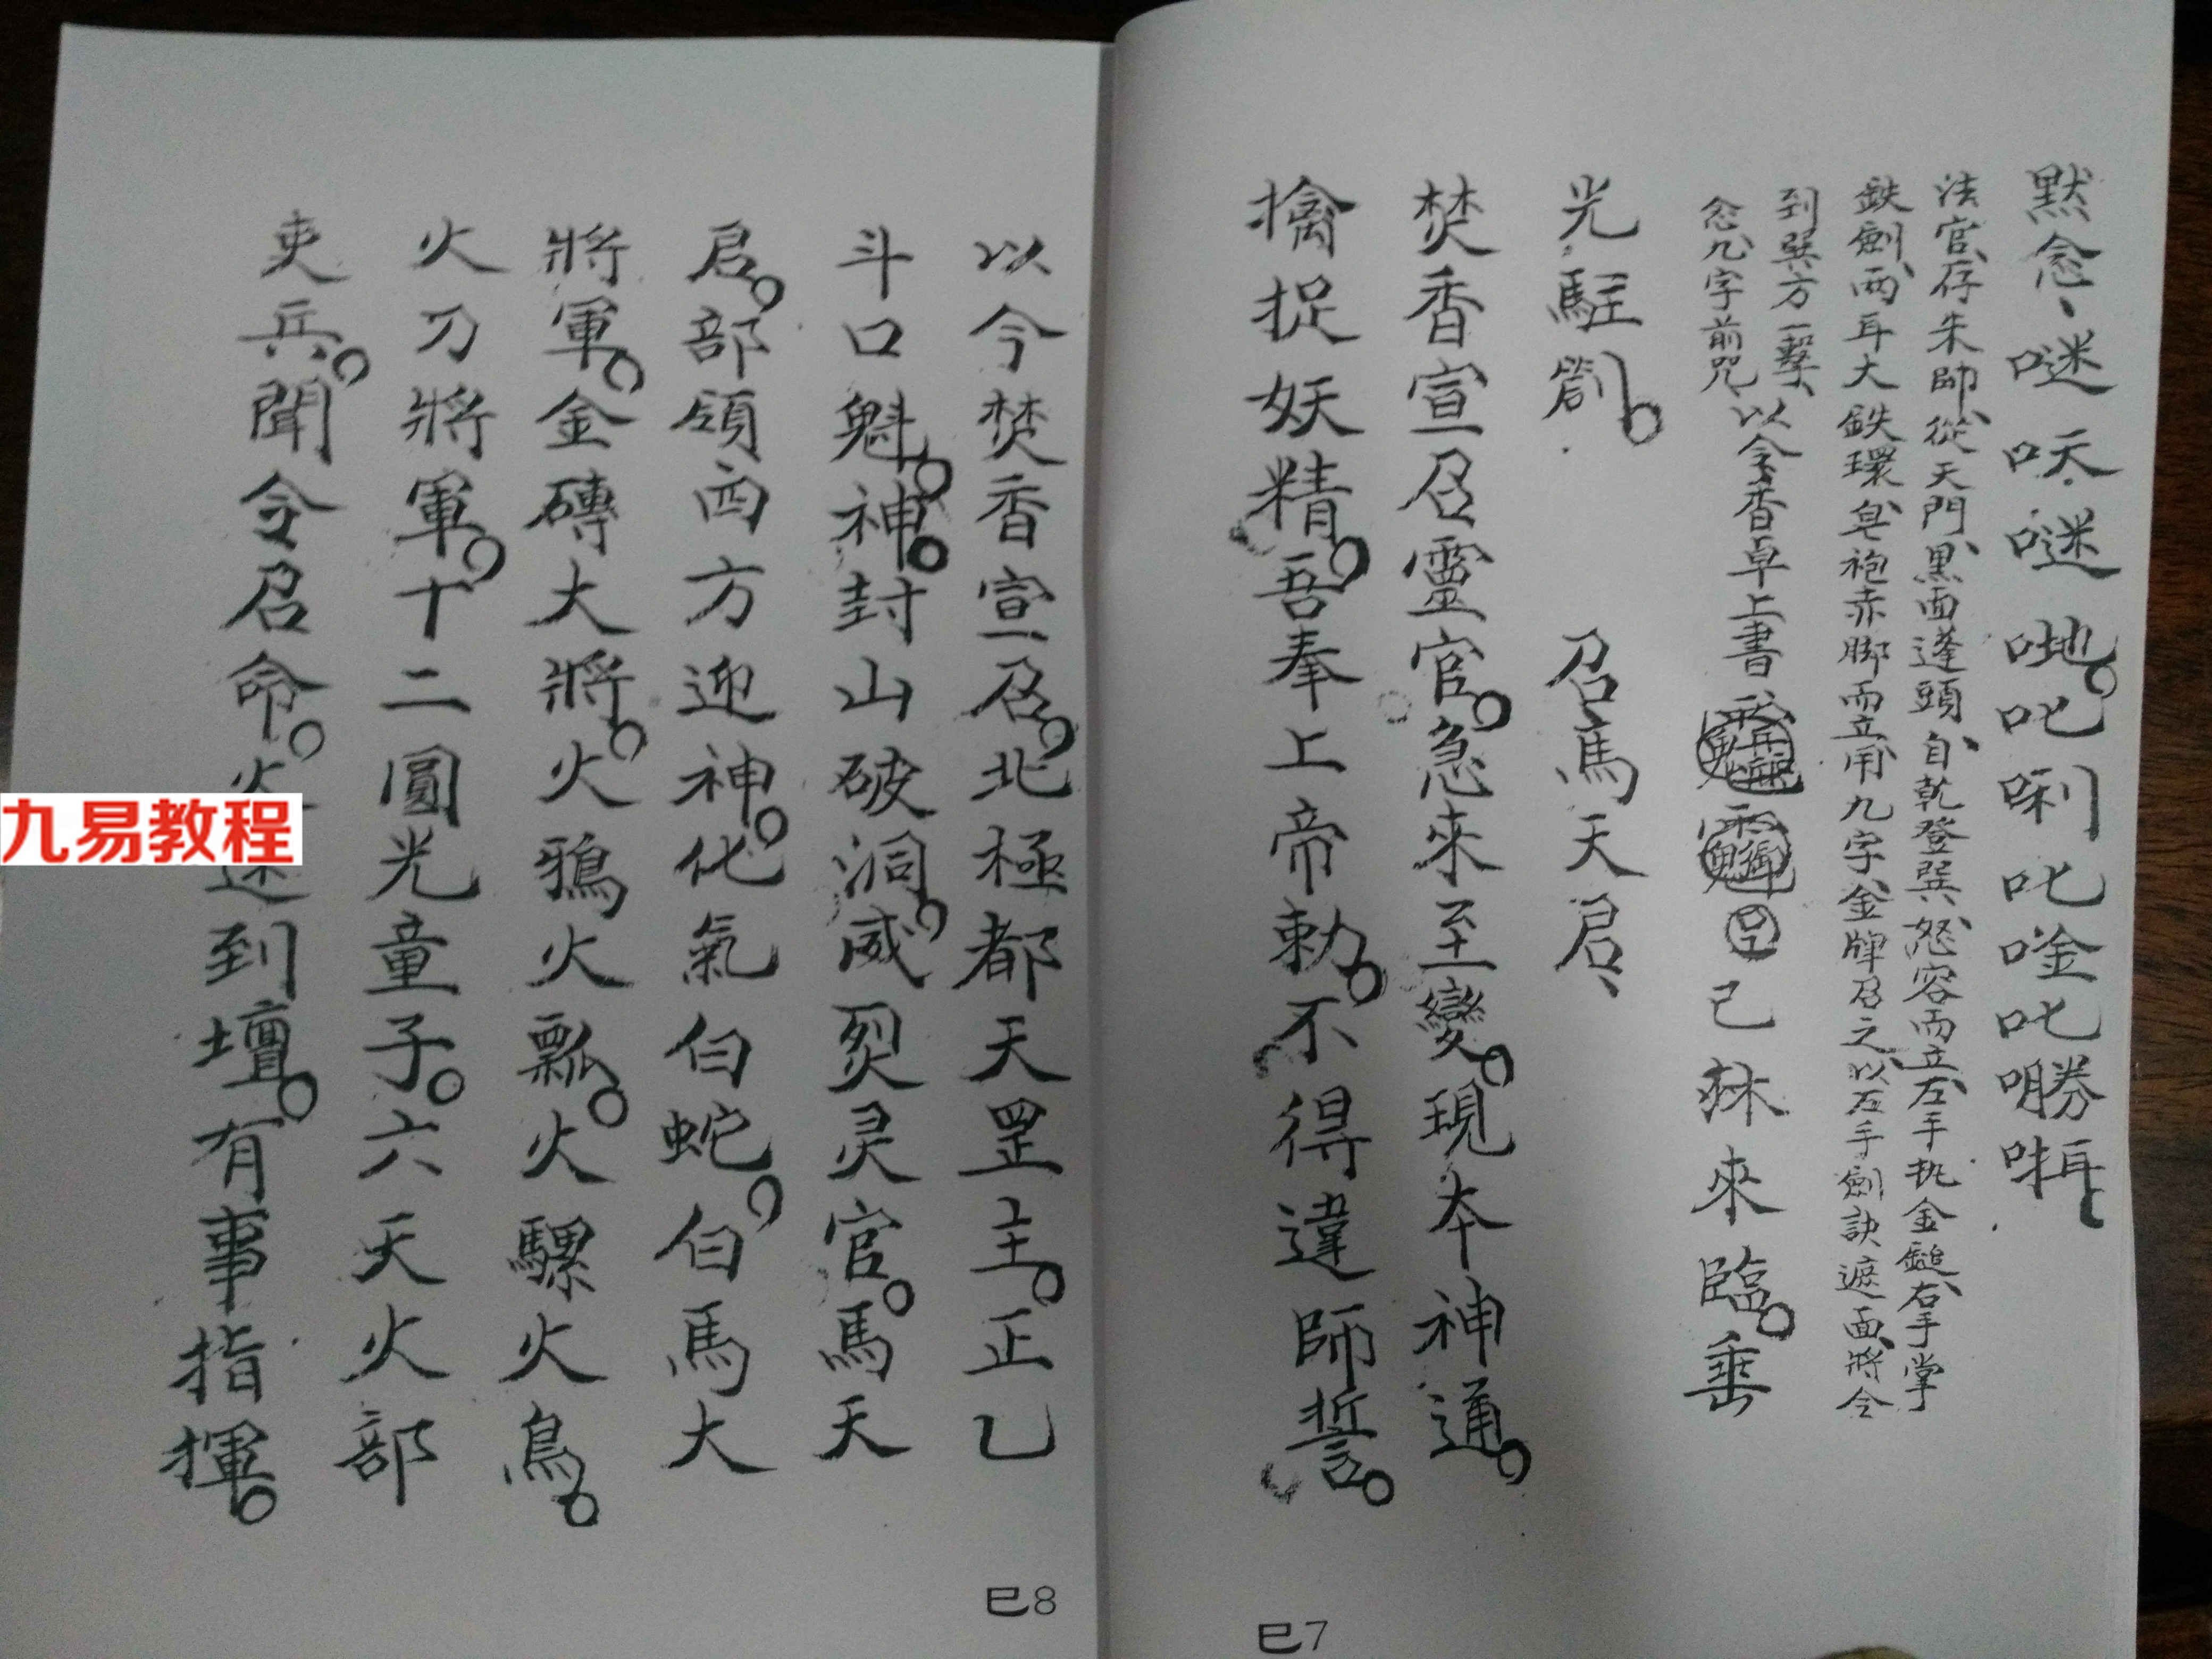 默念、㖷吞㖷哋。叱唎叱唫叱嘮㖇
法官、存朱帥、從天門、黑面蓬頭、自乾登巽、怒容而立、左手执金鎚、右手掌
鉄劍、两耳大鉄環、皂袍赤脚而立、用九字金牌召之、以左手劍訣遮面、將令
到巽方一擊、
念九字前咒、以令香卓上書 已 來臨。垂
光駐劄。 召馬天君、
焚香宣召靈官。急來至變。現本神通。
擒捉妖精。吾奉上帝勅。不得違師誓。
巳7
以令焚香宣召。北極都天罡主。正乙
斗口魁。神。封山破洞。威烮灵官。馬天
君。部領西方迎神。化氣白蛇。白馬大
將軍。金磚大將。火鴉火瓢。火騾火鳥。
火刀將軍。十二圓光童子。六天火部
吏兵。聞令召命。火速到壇。有事指揮。
巳8
九易教程